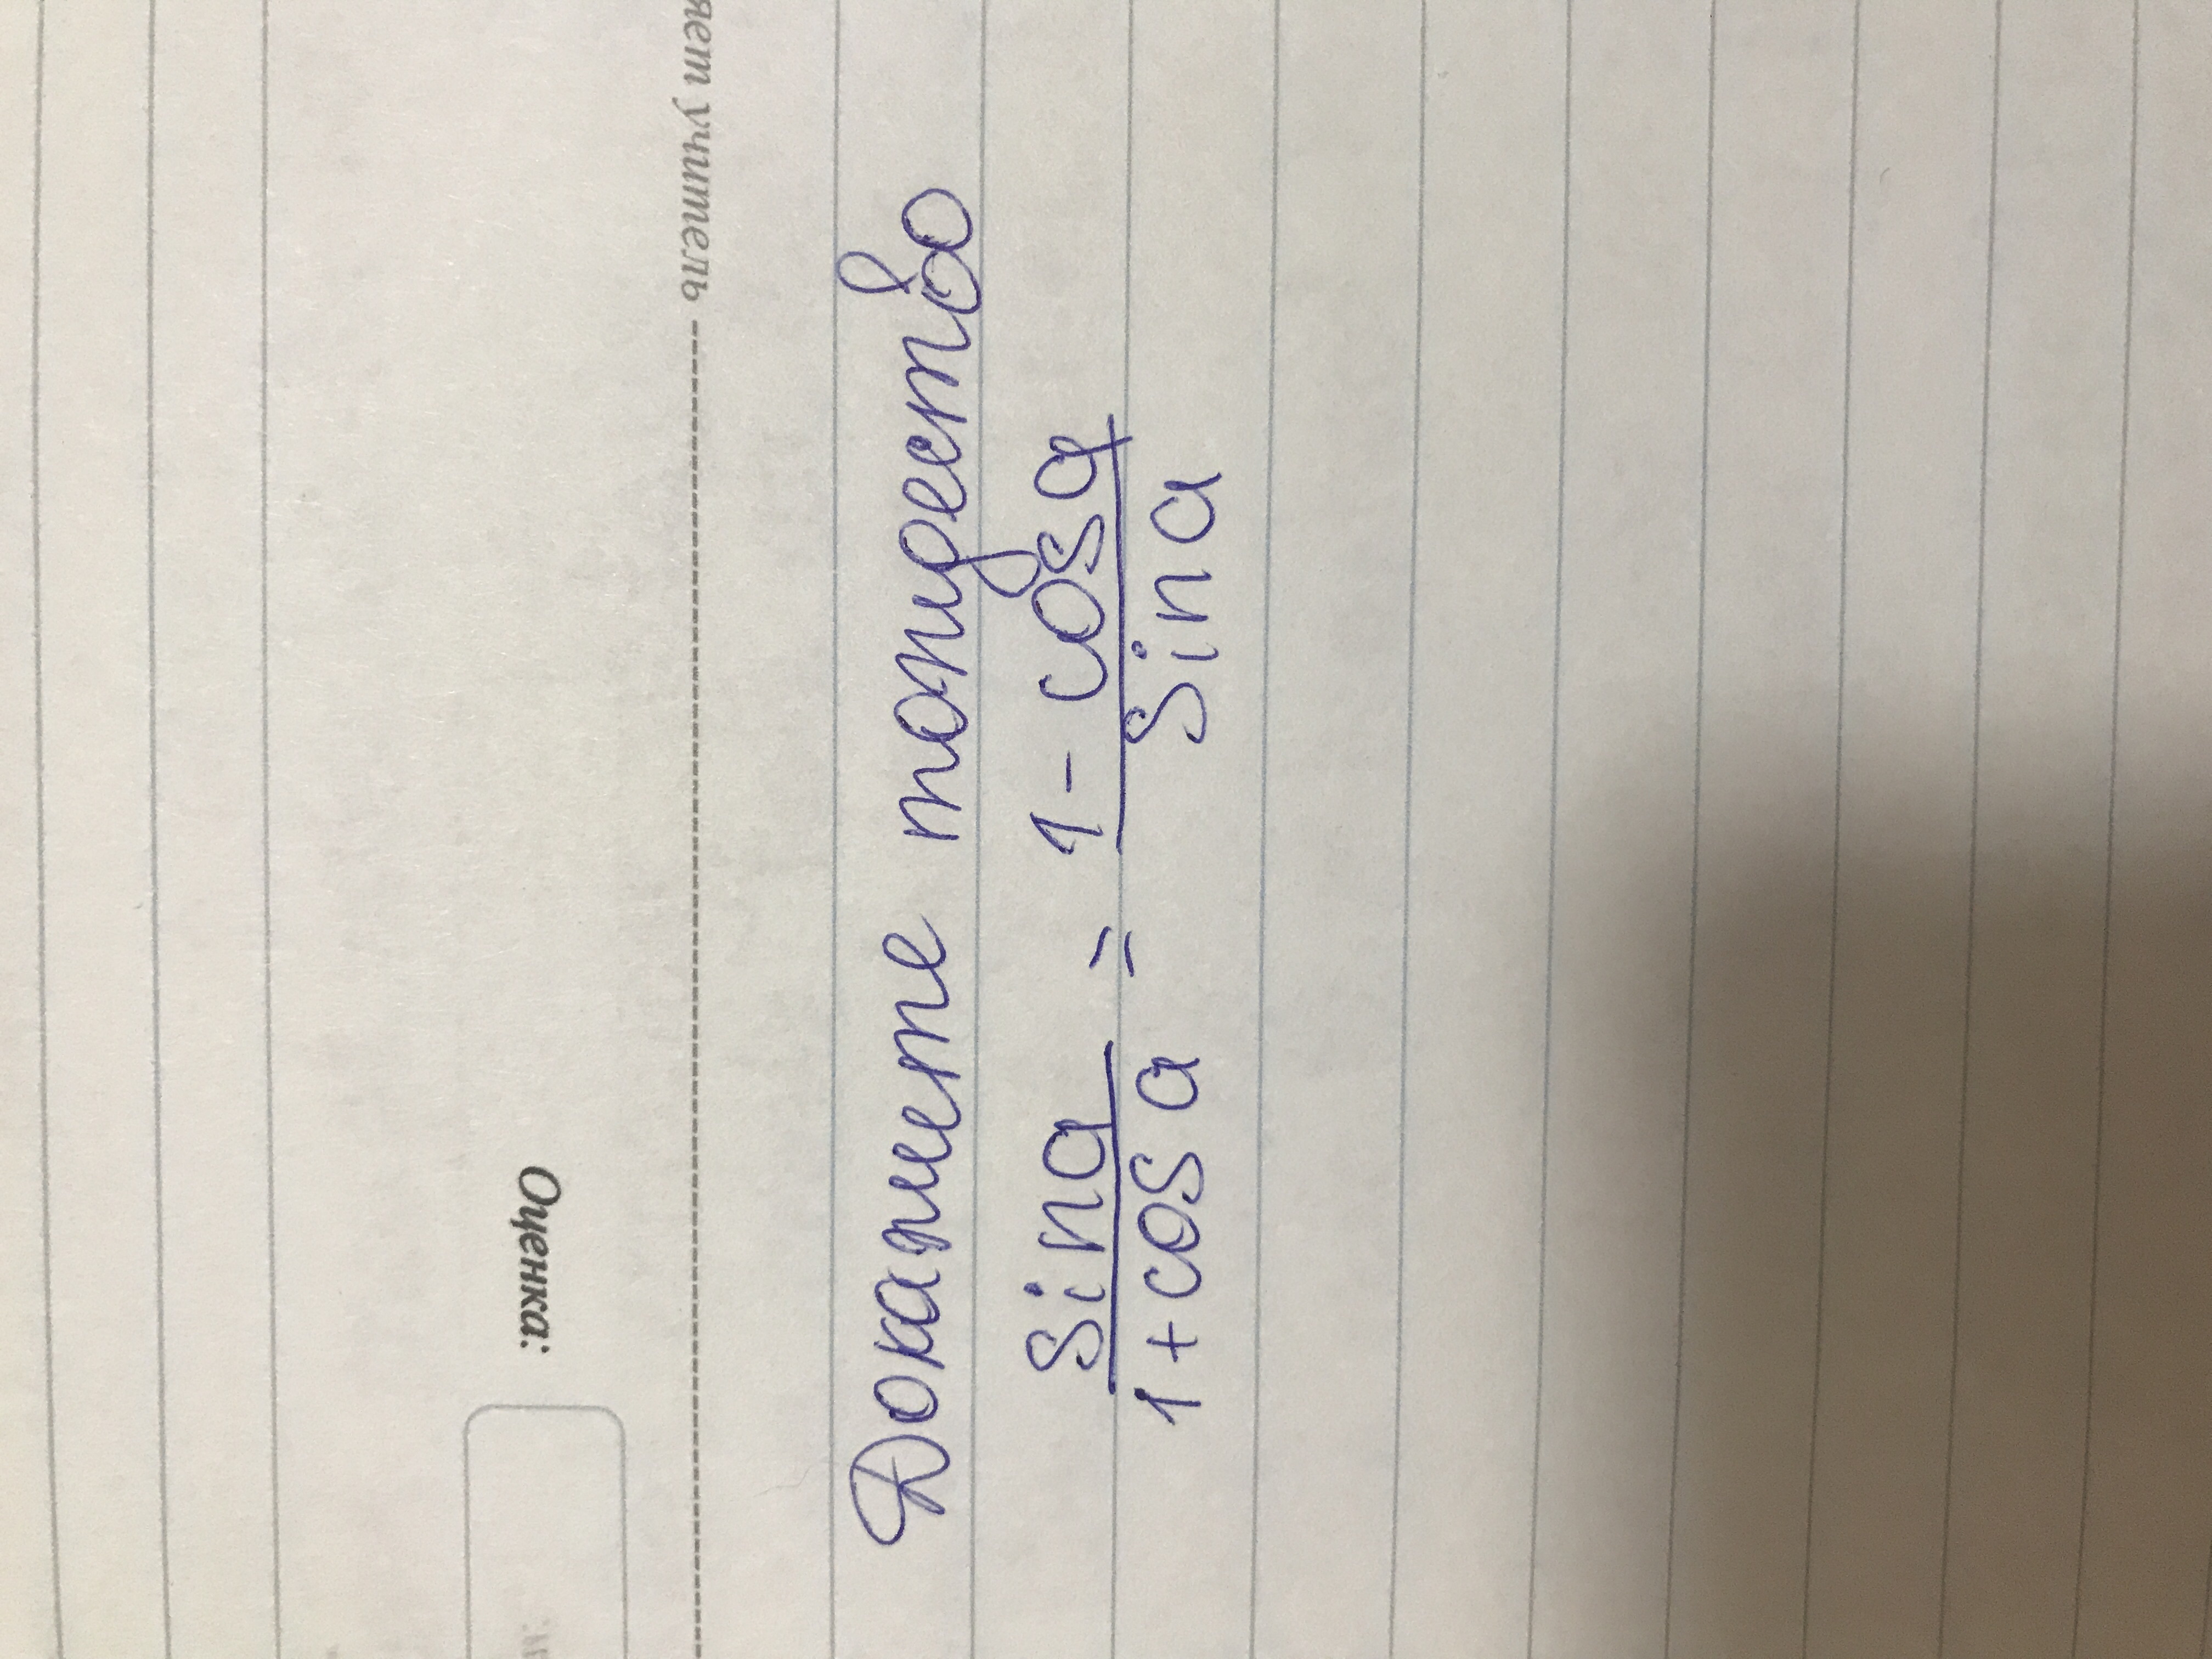 яет учитель
Оценка:
Докажите тождество
sin a / 1 + cos a = 1 - cos a / sin a